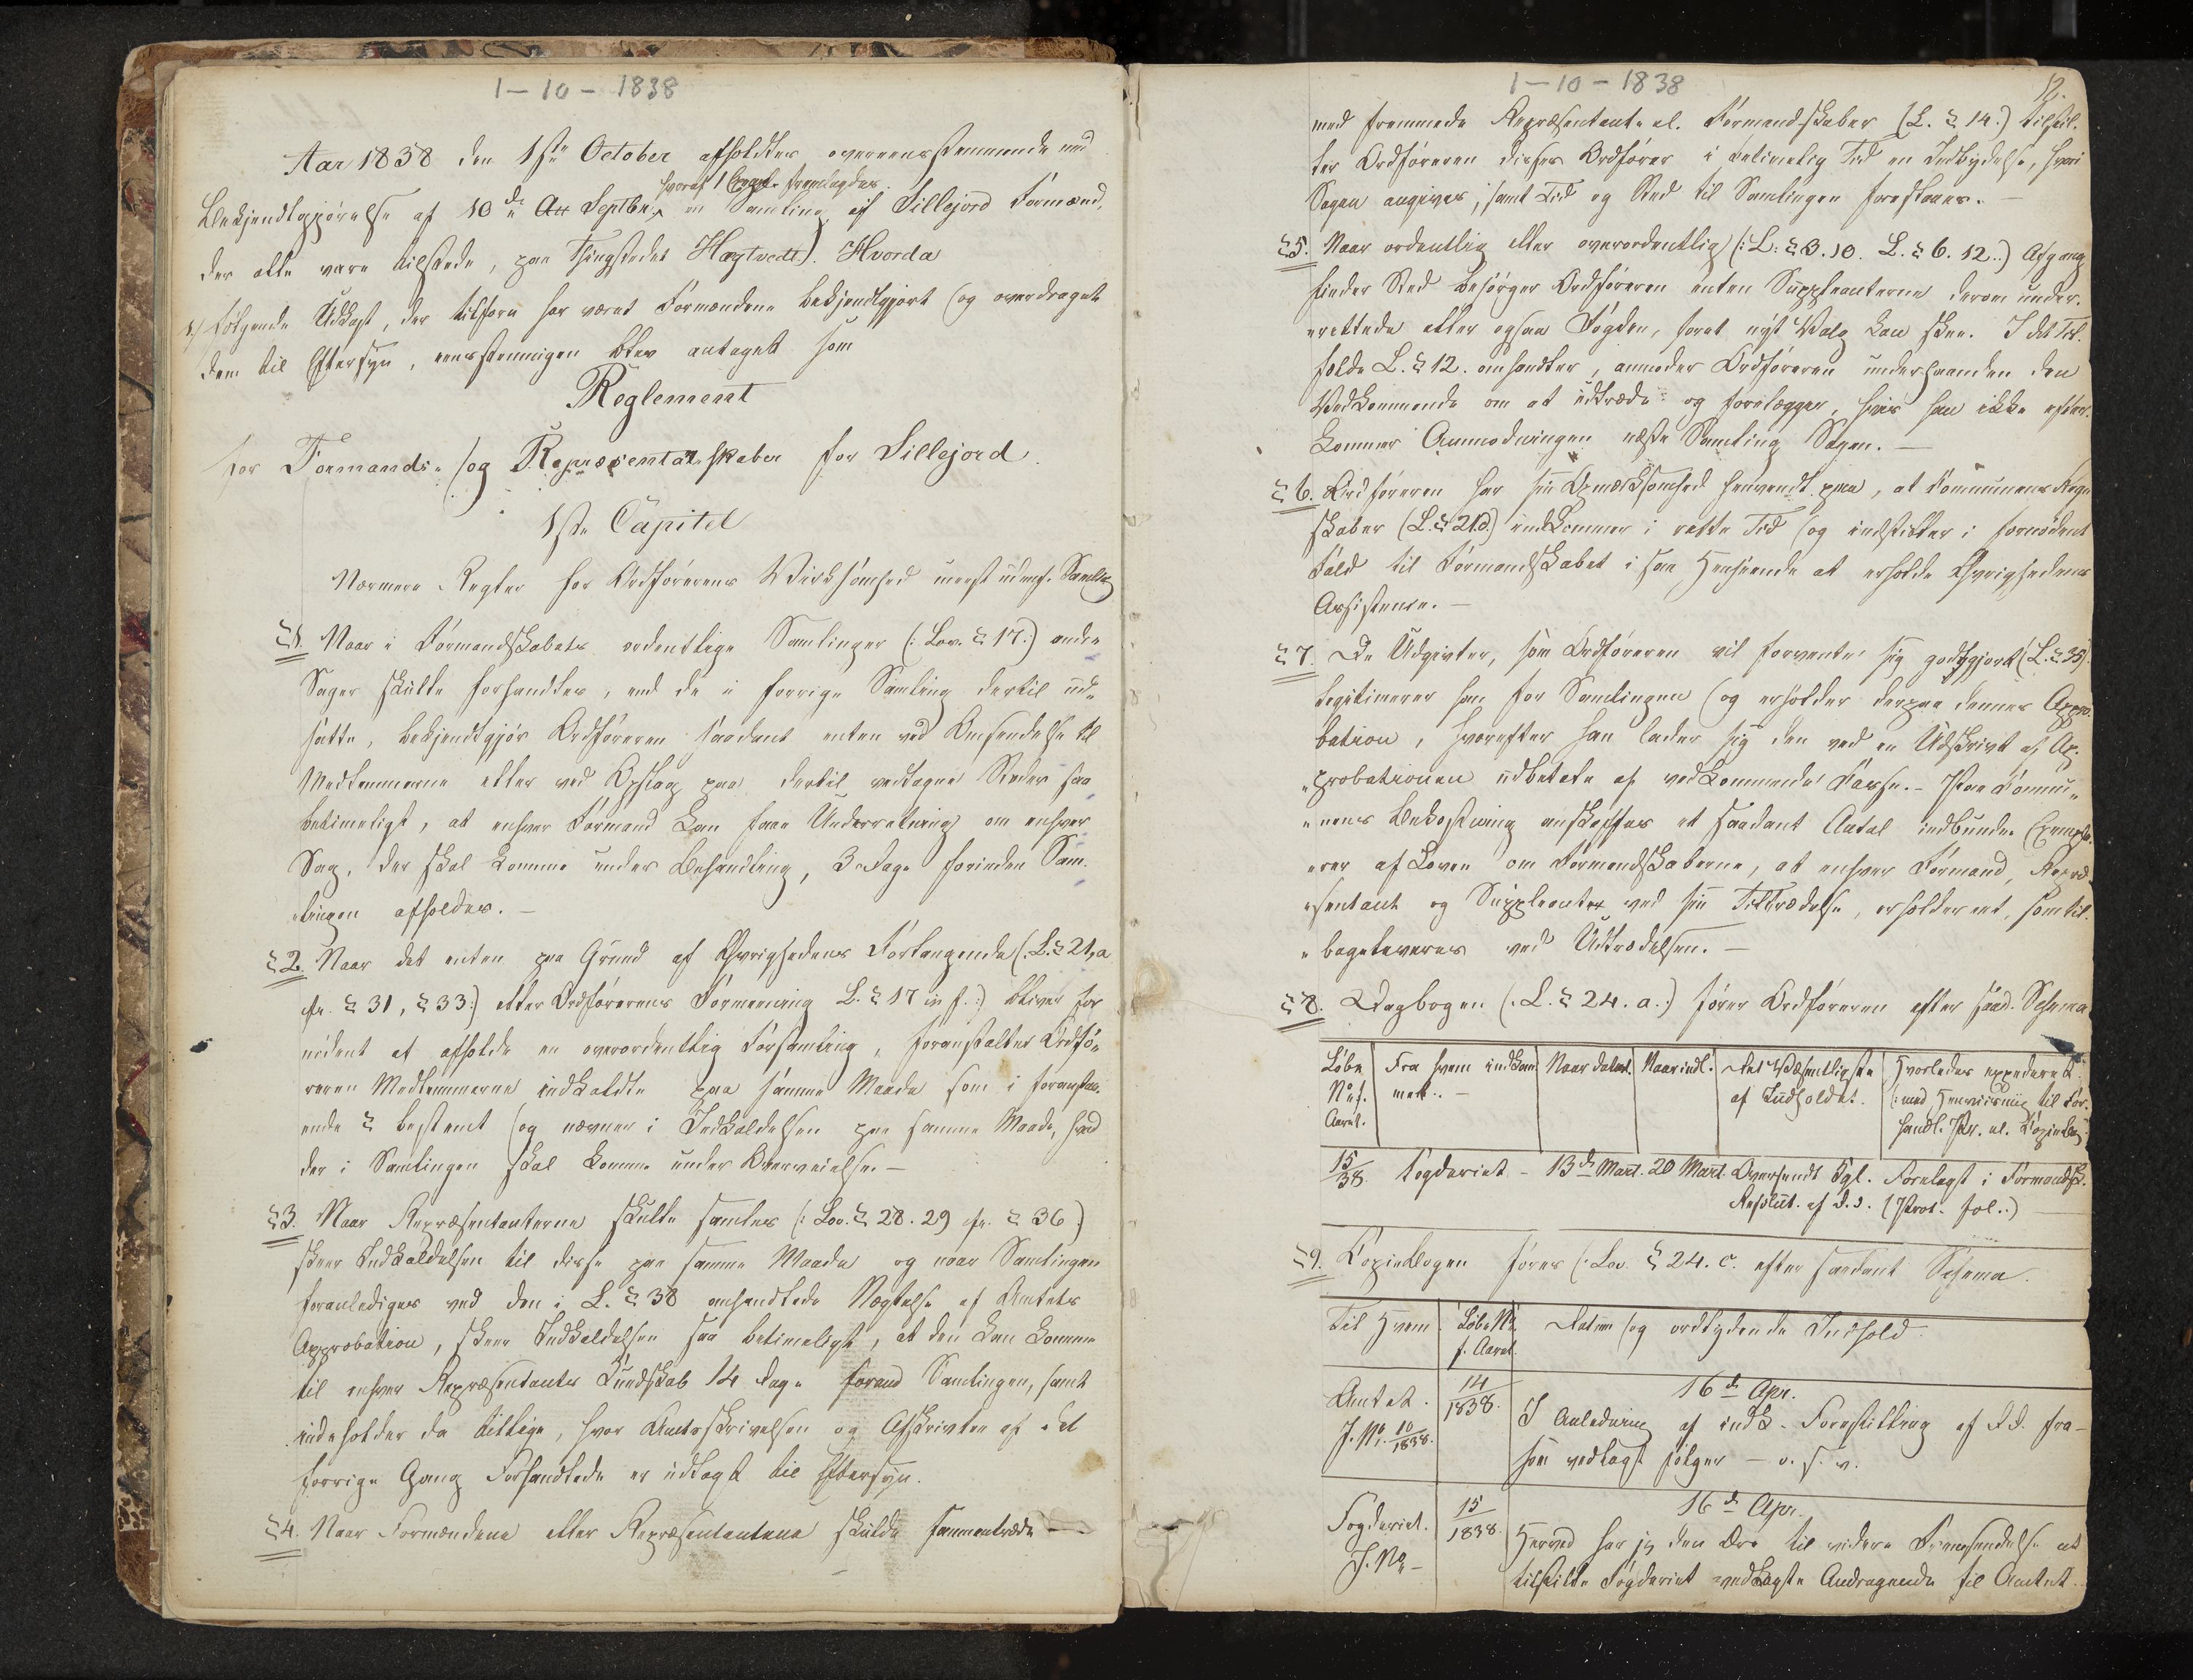 1-10-1838
Aar 1838 den 1ste October afholdtes overeensstemmende med
hvoraf 1 Exempl. fremlagdes
Bekjendtgjørelse af 10de Septbr. en Samling af Sillejord Formænd,
der alle vare tilstede, paa Thingstedet Hægtvedt). Hvorda
1) følgende Udkast, der tilforn har været Formændene bekjendtgjort (og overdraget
dem til Eftersyn, eenstemmigen blev antaget som
Reglement
for Formands- (og Repræsentantskaber for Sillejord.
1ste Capitel
Nærmere Regler for Ordførerens Virksomhed meest udenf. Samling
§1. Naar i Formandskabets ordentlige Samlinger (: Lov. § 17:) andre
Sager skulle forhandles, end de i forrige Samling dertil ud-
satte, bekjendtgjør Ordføreren saadant enten ved Omsendelse til
Medlemmerne eller ved Opslag paa dertil vedtagne Steder saa
betimeligt, at enhver Formand kan faae Underretning om enhver
Sag, der skal komme under Behandling, 3 Dage forinden Sam-
lingen afholdes. —
§2. Naar det enten paa Grund af Øvrighedens Forlangende (:L. § 21, a
cfr. § 31, § 33:) eller Ordførerens Formening L. § 17 in f.:) bliver for
nødent at afholde en overordentlig Forsamling, foranstalter Ordfø-
reren Medlemmerne indkaldte paa samme Maade som i foranstaa-
ende § bestemt (og nævner i Indkaldelsen paa samme Maade, hvad
der i Samlingen skal komme under Overveielse. —
§3. Naar Repræsentanterne skulle samles (: Lov. § 28. 29 cfr. § 36:)
skeer Indkaldelsen til disse paa samme Maade og naar Samlingen
foranlediges ved den i L. § 38 omhandlede Nægtelse af Amtets
Approbation, skeer Indkaldelsen saa betimeligt, at den kan komme
til enhver Repræsentants Kundskab 14 Dage forend Samlingen, samt
indeholder da tillige, hvor Amtsskrivelsen og Afskrivter af det
forrige Gang Forhandlede er udlagt til Eftersyn.
§4. Naar Formændene eller Repræsentantene skulde sammentræde —
1-10-1838
12.
med fremmede Repræsentant- el. Formandskaber (L. § 14.) tilstil-
ler Ordføreren disses Ordfører i betimelig Tid en Indbydelse, hvori
Sagen angives, samt Tid og Sted til Samlingen foreslaaes. —
§5. Naar ordentlig eller overordentlig (: L: § 3. 10. L. § 6. 12.:) Afgang
finder Sted besørger Ordføreren enten Suppleanterne derom under-
rettede eller ogsaa Fogden, foret nyt Valg kan skee. I det Til-
fælde L. § 12. omhandler, anmoder Ordføreren underhaanden den
Vedkommende om at udtræde og forelægger, hvis han ikke efter-
kommer Anmodningen næste Samling Sagen. —
§6. Ordføreren har sin Opmærksomhed henvendt paa, at Communens Regn
skaber (L. § 21d.) indkommer i rette Tid (og indstiller i fornødent
Fald til Formandskabet i saa Henseende at erholde Øvrighedens
Assistence. —
§7. De Udgivter, som Ordføreren vil forvente sig godtgjort (L. § 35).
legitimerer han for Samlingen (og erholder derpaa dennes Appro-
bation, hvorefter han lader sig den ved en Udskrivt af Ap-
probationen udbetale af vedkommende Casse. — Paa Commu-
nens Bekostning anskaffes et saadant Antal indbundne Exempla-
rer af Loven om Formandskaberne, at enhver Formand, Repræ-
sentant og Suppleanter ved sin Tiltrædelse, erholder et, som til-
bageleveres ved Udtrædelsen. —
§8. Dagbogen (: L. § 24. a.:) fører Ordføreren efter saad. Schema
Løbe No f. Aaret. | Fra hvem indkommet. — | Naar dateret. | Naar indl. | Det Væsentligste af Indholdet. | Hvorledes expederet (: med Henviisning til Forhandl. Pr. el. Copiebog
15/38. Fogderiet — 13de Mart. 20 Mart. Oversendt Kgl. Forelagt i Formandsk.
Resolut. af D. D. (Prot. fol..)
§9. Copiebogen føres (: Lov. § 24. c. efter saadant Schema.
Til Hvem | Løbe No f. Aaret. | Datum (og ordlydende Indhold.
Amtet. J. No. 10/1838. | 14/1838. | 16de Apr.
I Anledning af indk. Forestilling af D. D. fra —
som vedlagt følger — o. s. v.
Fogderiet. J. No — | 15/1838. | 16de Apr.
Herved har jeg den Ære til videre Fremsendelse at
tilstille Fogderiet vedlagte Andragende til Amtet.